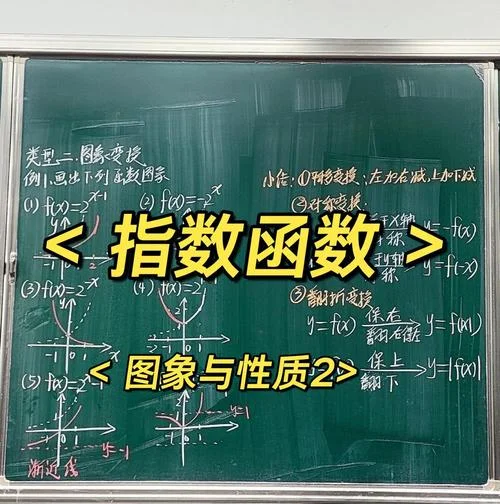 类型二.图象变换
例1.画出下列函数图象
(1) f(x)=2^{x-1}
(2) f(x)=-2^x
< 指数函数 >
(3) f(x)=2^{-x}
(4) f(x)=2
< 图象与性质2>
(5) f(x)=2
y=-1
渐近线
小结:①平移变换:左加右减,上加下减
②对称变换:
y=-f(x)
y=f(-x)
③翻折变换
y=f(x) 保右 翻右 y=f(|x|)
保上 翻下 y=|f(x)|